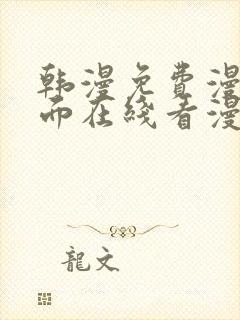 韩漫免费漫
而在线看漫
龍文